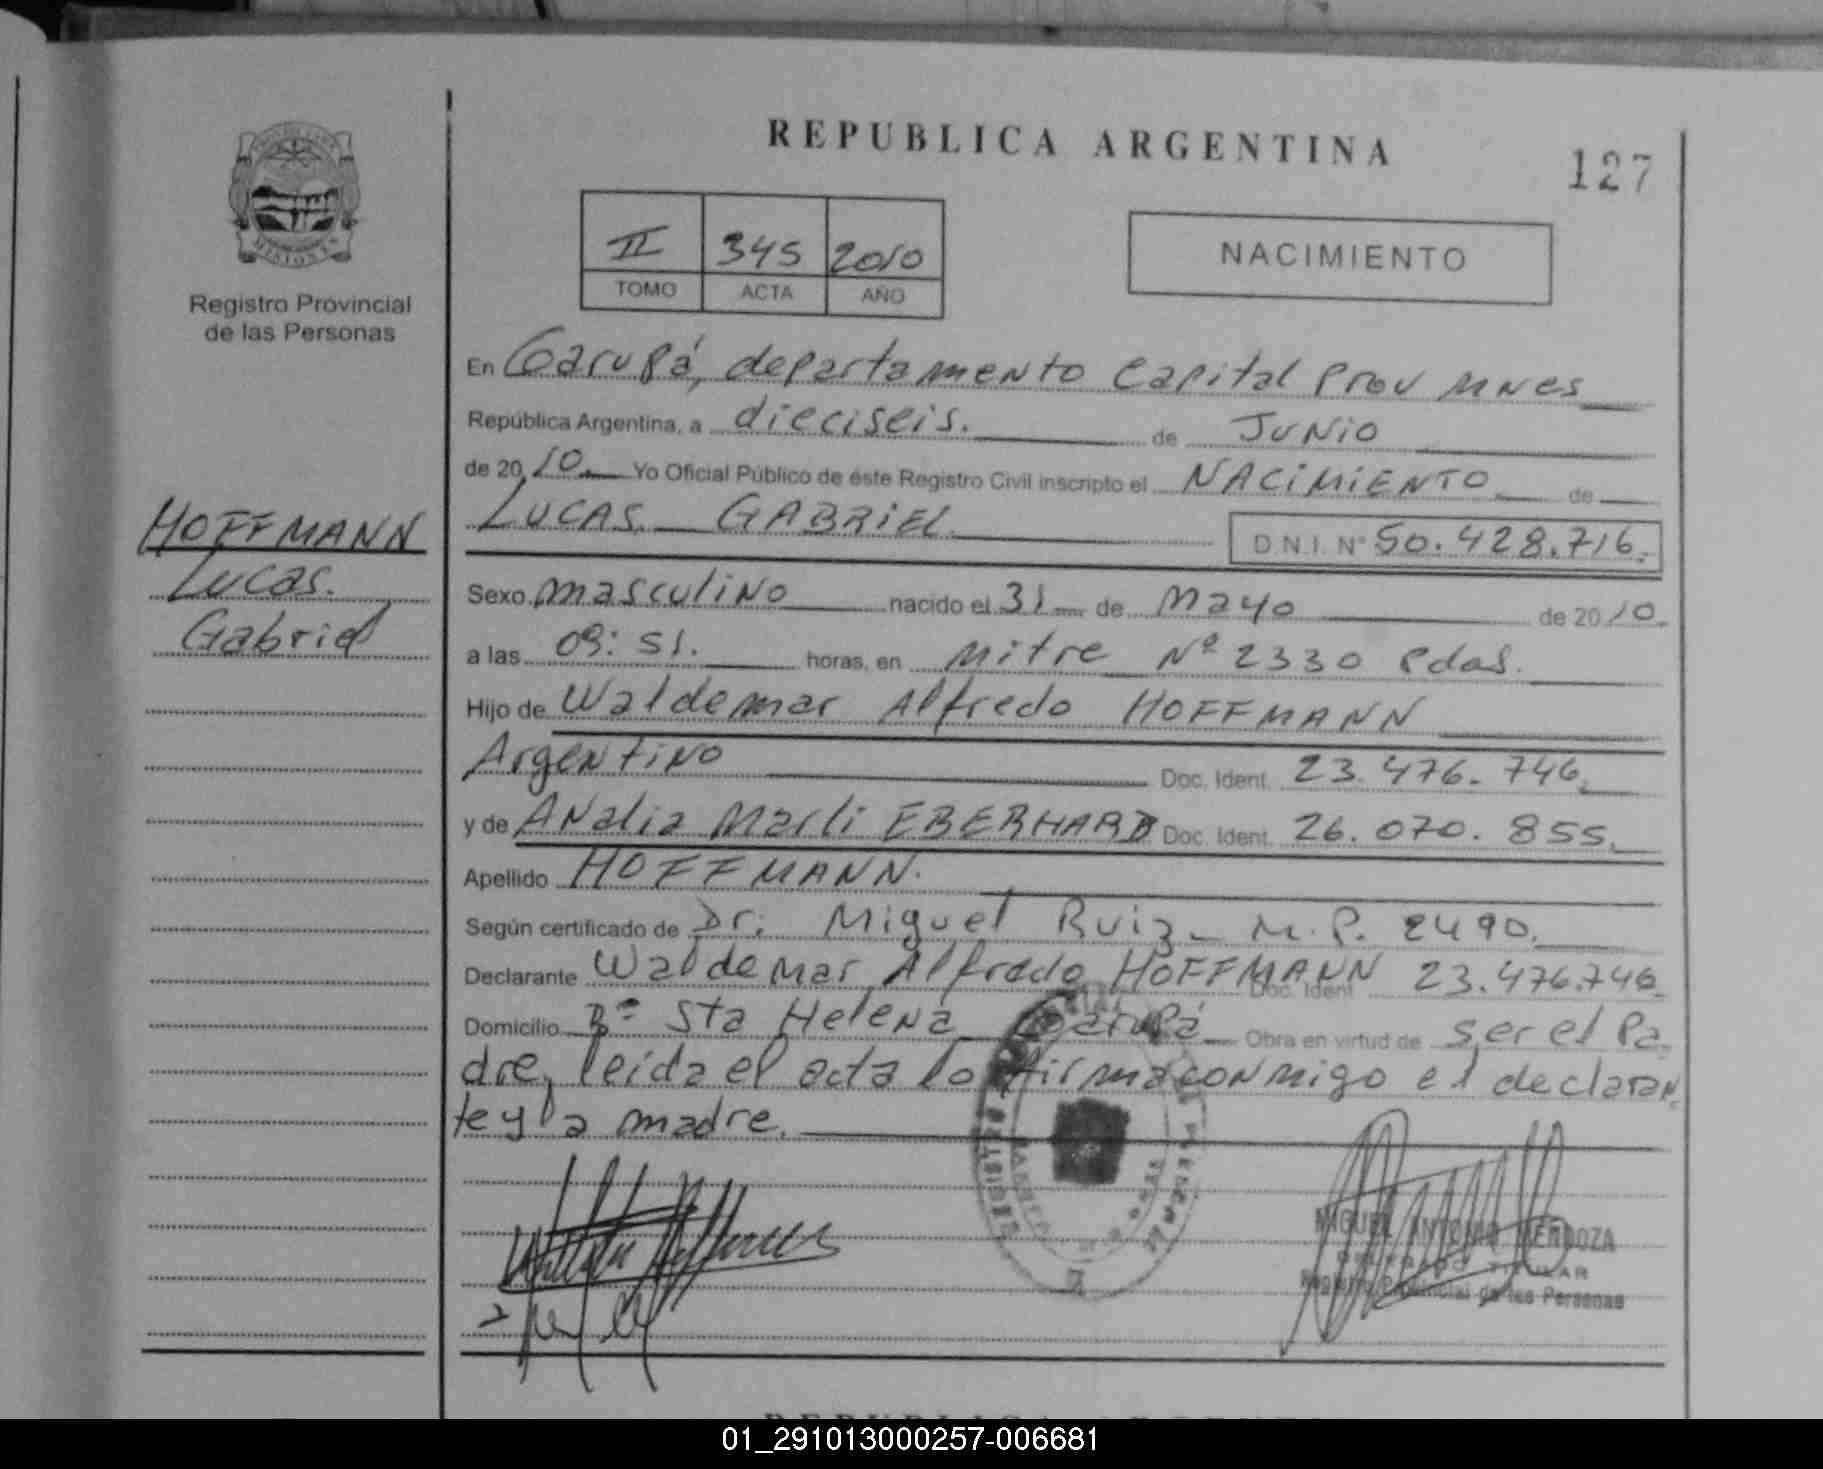 REPUBLICA ARGENTINA
127
MISIONES
Registro Provincial
de las Personas
II 345 2010
TOMO ACTA AÑO
NACIMIENTO
En Garupá, departamento Capital Prov Mnes
República Argentina, a dieciseis. de Junio
de 20 10. Yo Oficial Público de éste Registro Civil inscripto el NACIMIENTO de
LUCAS GABRIEL D.N.I. Nº 50.428.716.
HOFFMANN
Lucas.
Gabriel
Sexo masculino nacido el 31 de Mayo de 20 10.
a las 09:51. horas, en Mitre Nº 2330 Pdas.
Hijo de Waldemar Alfredo HOFFMANN
Argentino Doc. Ident. 23.476.746.
y de Analia Marli EBERHARD Doc. Ident. 26.070.855.
Apellido HOFFMANN.
Según certificado de Dr. Miguel Ruiz M.P. 2490.
Declarante Waldemar Alfredo HOFFMANN Doc. Ident 23.476.746
Domicilio Bº Sta Helena Garupá Obra en virtud de ser el Pa
dre, leida el acta lo firma conmigo el declaran
te y la madre.
MIGUEL ANTONIO MENDOZA
DELEGADO TITULAR
Registro Provincial de las Personas
REPUBLICA ARGENTINA
01_291013000257-006681